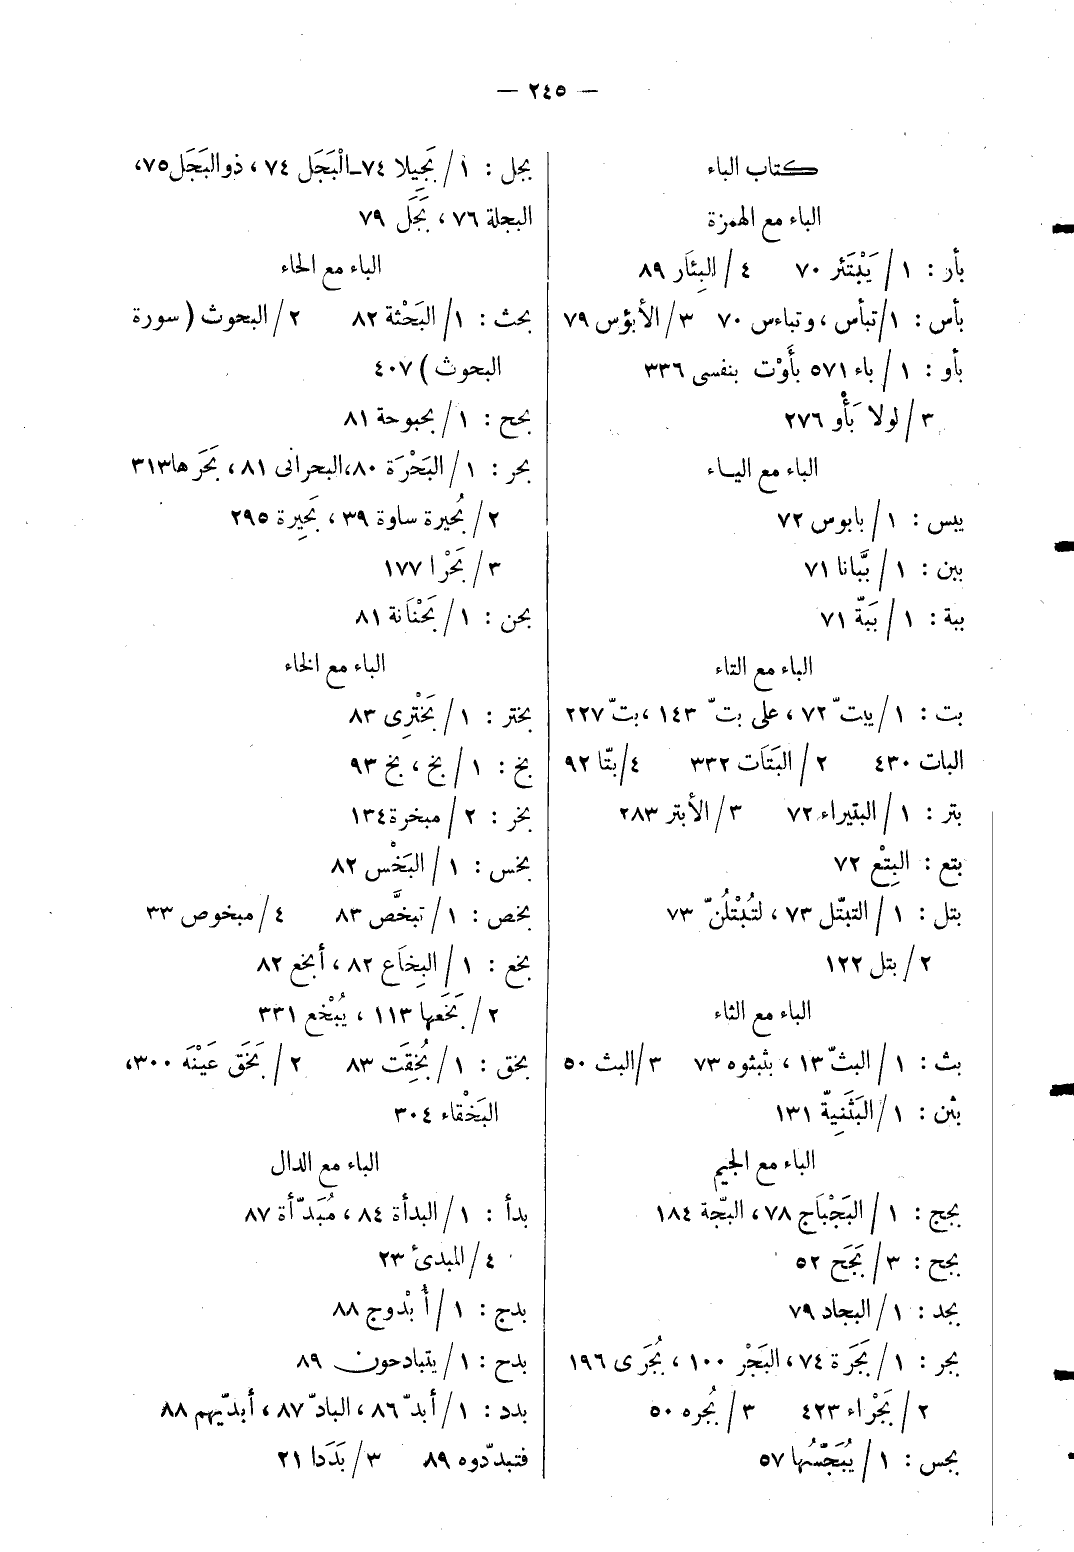 — ٢٤٥ —
كتاب الباء
الباء مع الهمزة
بأر : ١ / يَبْتَئر ٧٠ ٤ / البِئَار ٨٩
بأس : ١/تبأس ، وتباءس ٧٠ ٣ / الأبؤس ٧٩
بأو : ١ / باء ٥٧١ بأَوْت بنفسى ٣٣٦
٣ / لولا بَأْو ٢٧٦
الباء مع اليـاء
يبس : ١ / بابوس ٧٢
ببن : ١ / بَّبانا ٧١
ببة : ١ / بَبّة ٧١
الباء مع التاء
بت : ١ / يبتّ ٧٢ ، على بتّ ١٤٣ ، بتّ ٢٢٧
البات ٤٣٠ ٢ / البَتَات ٣٣٢ ٤/ بتّا ٩٢
بتر : ١ / البتيراء ٧٢ ٣ / الأبتر ٢٨٣
بتع : البِتْع ٧٢
بتل : ١ / التبتّل ٧٣ ، لتُبْتلُنّ ٧٣
٢ / بتل ١٢٢
الباء مع الثاء
بث : ١ / البثّ ١٣ ، بثبثوه ٧٣ ٣ /البث ٥٠
بثن : ١ / البَثَنِيّة ١٣١
الباء مع الجيم
بجج : ١ / البَجْبَاج ٧٨ ، البجّة ١٨٤
بجح : ٣ / بَجَح ٥٢
بجد : ١ / البجاد ٧٩
بجر : ١ / بَجَرَة ٧٤ ، البَجْر ١٠٠ ، بُجَرَى ١٩٦
٢ / بَجْراء ٤٢٣ ٣ / بُجره ٥٠
بجس : ١ / يُبَجّسُها ٥٧
بجل : ١ / بَجِيلا ٧٤ـ الْبَجَل ٧٤ ، ذو البَجَل ٧٥،
البجلة ٧٦ ، بَجَل ٧٩
الباء مع الحاء
بحث : ١ / البَحْثة ٨٢ ٢ / البحوث ( سورة
البحوث ) ٤٠٧
بحح : ١ / بحبوحة ٨١
بحر : ١ / البَحْرَة ٨٠،البحرانى ٨١ ، بَحَرها٣١٣
٢ / بُحيرة ساوة ٣٩ ، بَحِيرة ٢٩٥
٣ / بَحْرا ١٧٧
بحن : ١ / بَحْنَانة ٨١
الباء مع الخاء
بختر : ١ / بَخْتِرى ٨٣
بخ : ١ / بخ ، بخ ٩٣
بخر : ٢ / مبخرة١٣٤
بخس : ١ / البَخْس ٨٢
بخص : ١ / تبخَّص ٨٣ ٤ / مبخوص ٣٣
بخع : ١ / البِخَاع ٨٢ ، أبخع ٨٢
٢ / بَخَعها ١١٣ ، يُبْخع ٣٣١
بخق : ١ / بُخِقَت ٨٣ ٢ / بَخَق عَيْنَه ٣٠٠،
البَخْقاء ٣٠٤
الباء مع الدال
بدأ : ١ / البدأة ٨٤ ، مُبَدّأة ٨٧
٤ / المبدئ ٢٣
بدج : ١ / أُبْدوج ٨٨
بدح : ١ / يتبادحون ٨٩
بدد : ١ / أبدّ ٨٦ ، البادّ ٨٧ ، أبدّيهم ٨٨
فتبددّوه ٨٩ ٣ / بَدَدا ٢١